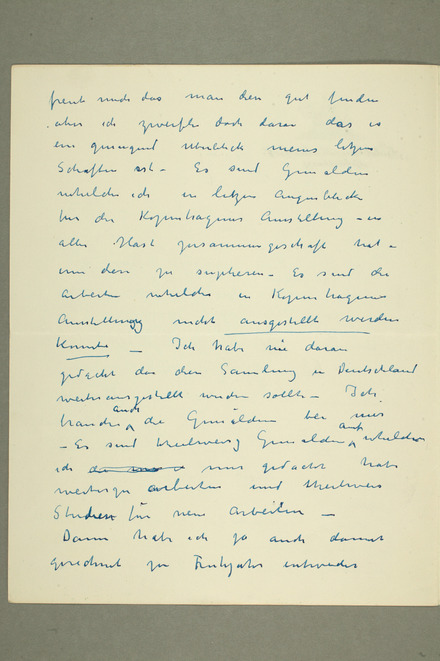 freut mich das man den gut finden
aber ich zweifle doch daran das es
ein genügend überblick meines letzen
Schaffen ist – Es sind Gemälden
welche ich in letzen Augenblick
für die Kopenhagener Ausstellung – in
aller Hast zusammengeschaft hat –
um den zu suplieren – Es sind die
Arbeiten welche in Kopenhagener
Ausstellung nicht ausgestellt werden
konnte – Ich habe nie daran
gedacht das dieser Samlung in Deutschland
weiter ausgestellt werden sollte – Ich
brauche auch die Gemälden bei mir
– Es sind theilweis Gemälden auf welchen
ich mir gedacht habe
weiterzu arbeiten und theilweis
Studien für neue Arbeiten –
Dann habe ich ja auch damit
gerechnet zu Frühjahr entweder